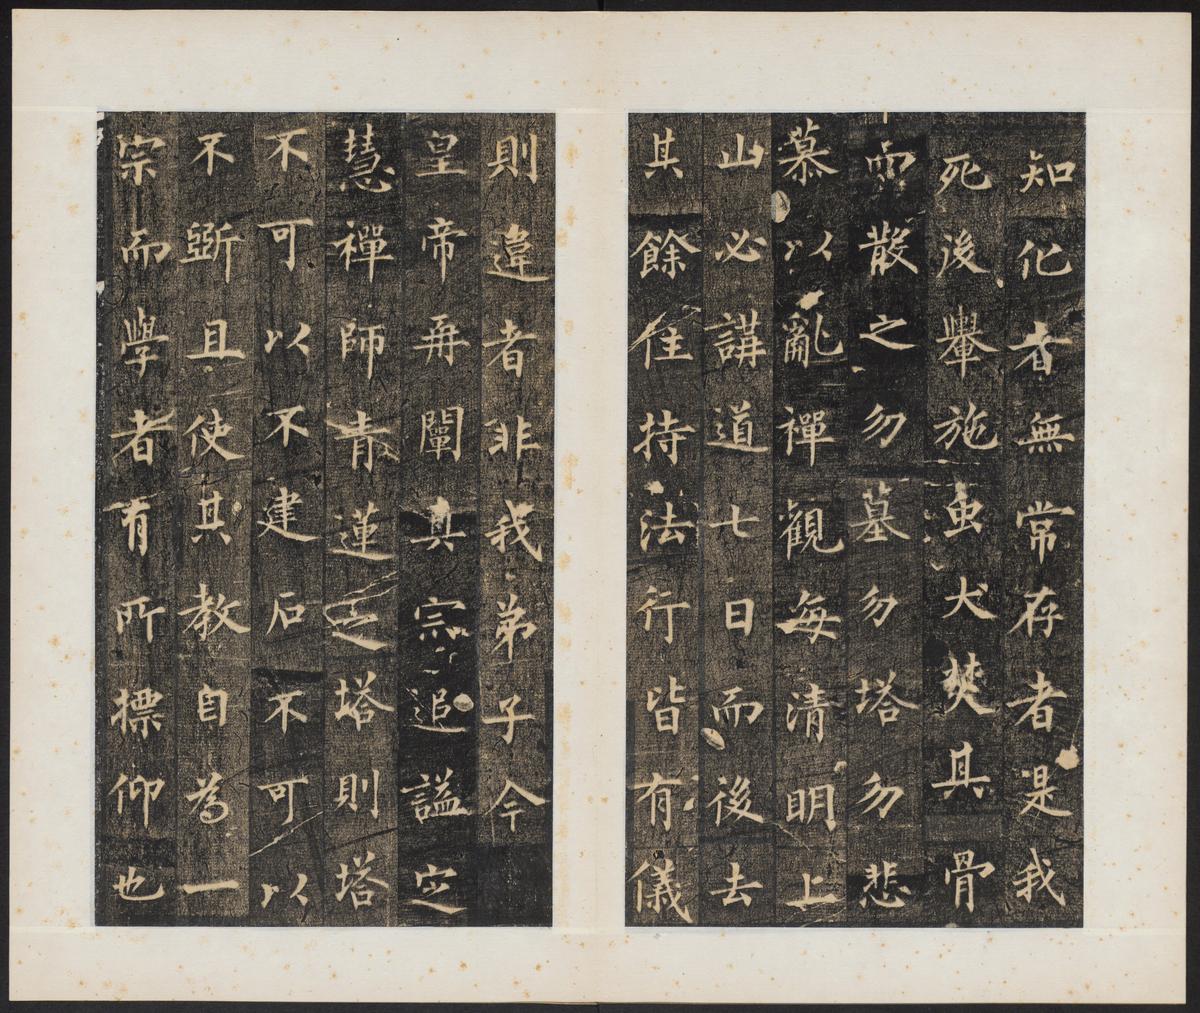 知化者無常存者是我
死後轝施虫犬焚其骨
而散之勿墓勿塔勿悲
慕以亂禪觀每清明上
山必講道七日而後去
其餘住持法行皆有儀
則違者非我弟子今
皇帝再闡真宗追謚定
慧禪師青蓮之塔則塔
不可以不建石不可以
不斵且使其教自為一
宗而學者有所摽仰也